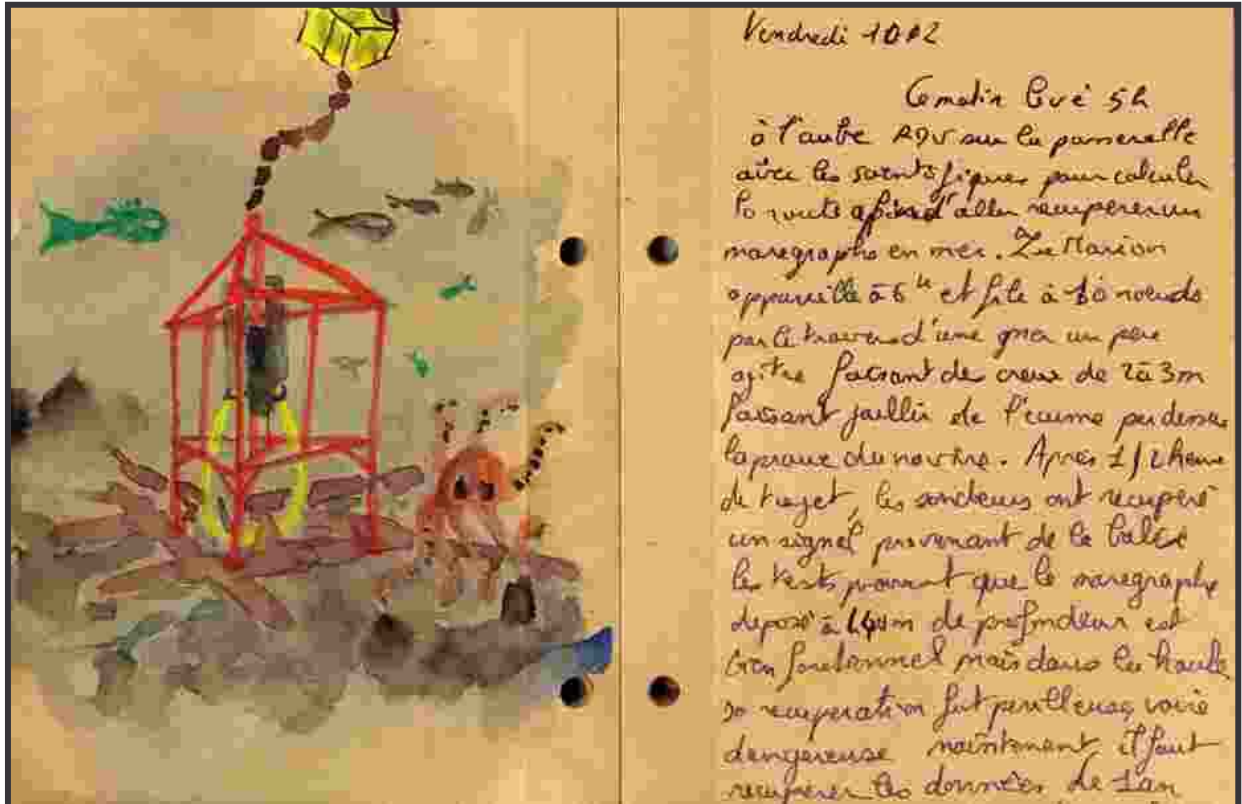 Vendredi 10 02
Ce matin levé 5h
à l'aube RDV sur la passerelle
avec les scientifiques pour calculer
la route afin d'aller recuperer un
maregraphe en mer. Le Marion
appareille à 6h et file à 10 noeuds
par le travers d'une mer un peu
agitee faisant des creux de 2 à 3m
faisant jaillir de l'ecume par dessus
la proue du navire. Apres 1/2 heure
de trajet, les sondeurs ont recuperé
un signal provenant de la balise
les tests prouvent que le maregraphe
deposé à de profondeur est
bien fontionnel mais dans la houle
sa recuperation fut perilleuse, voire
dangereuse maintenant il faut
recuperer les données de 1 an